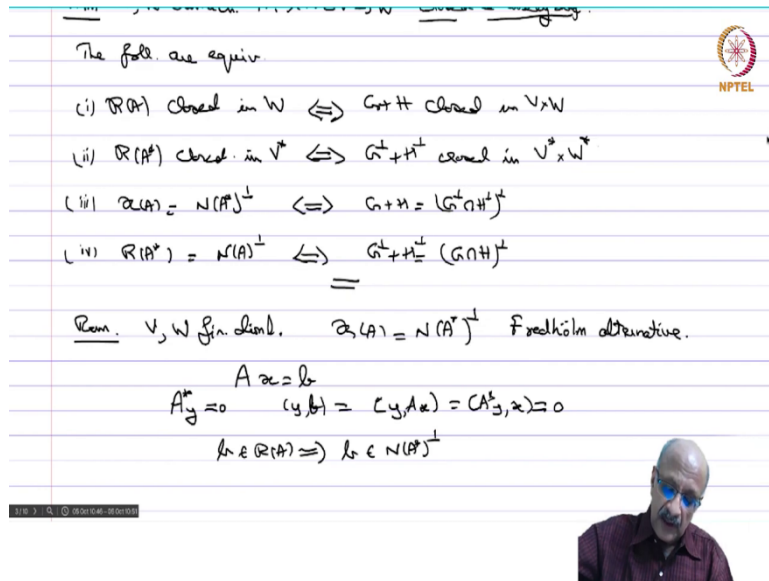 NPTEL
The foll. are equiv.
(i) R(A) closed in W ⇔ G+H closed in V×W
(ii) R(A*) closed in V* ⇔ G⊥+H⊥ closed in V*×W*
(iii) R(A) = N(A*)⊥ ⇔ G+H = (G⊥∩H⊥)⊥
(iv) R(A*) = N(A)⊥ ⇔ G⊥+H⊥ = (G∩H)⊥
Rem. V, W fin. diml. R(A) = N(A*)⊥ Fredhölm alternative.
Ax = b
A*y = 0 (y,b) = (y,Ax) = (A*y,x) = 0
b ∈ R(A) ⇒ b ∈ N(A*)⊥